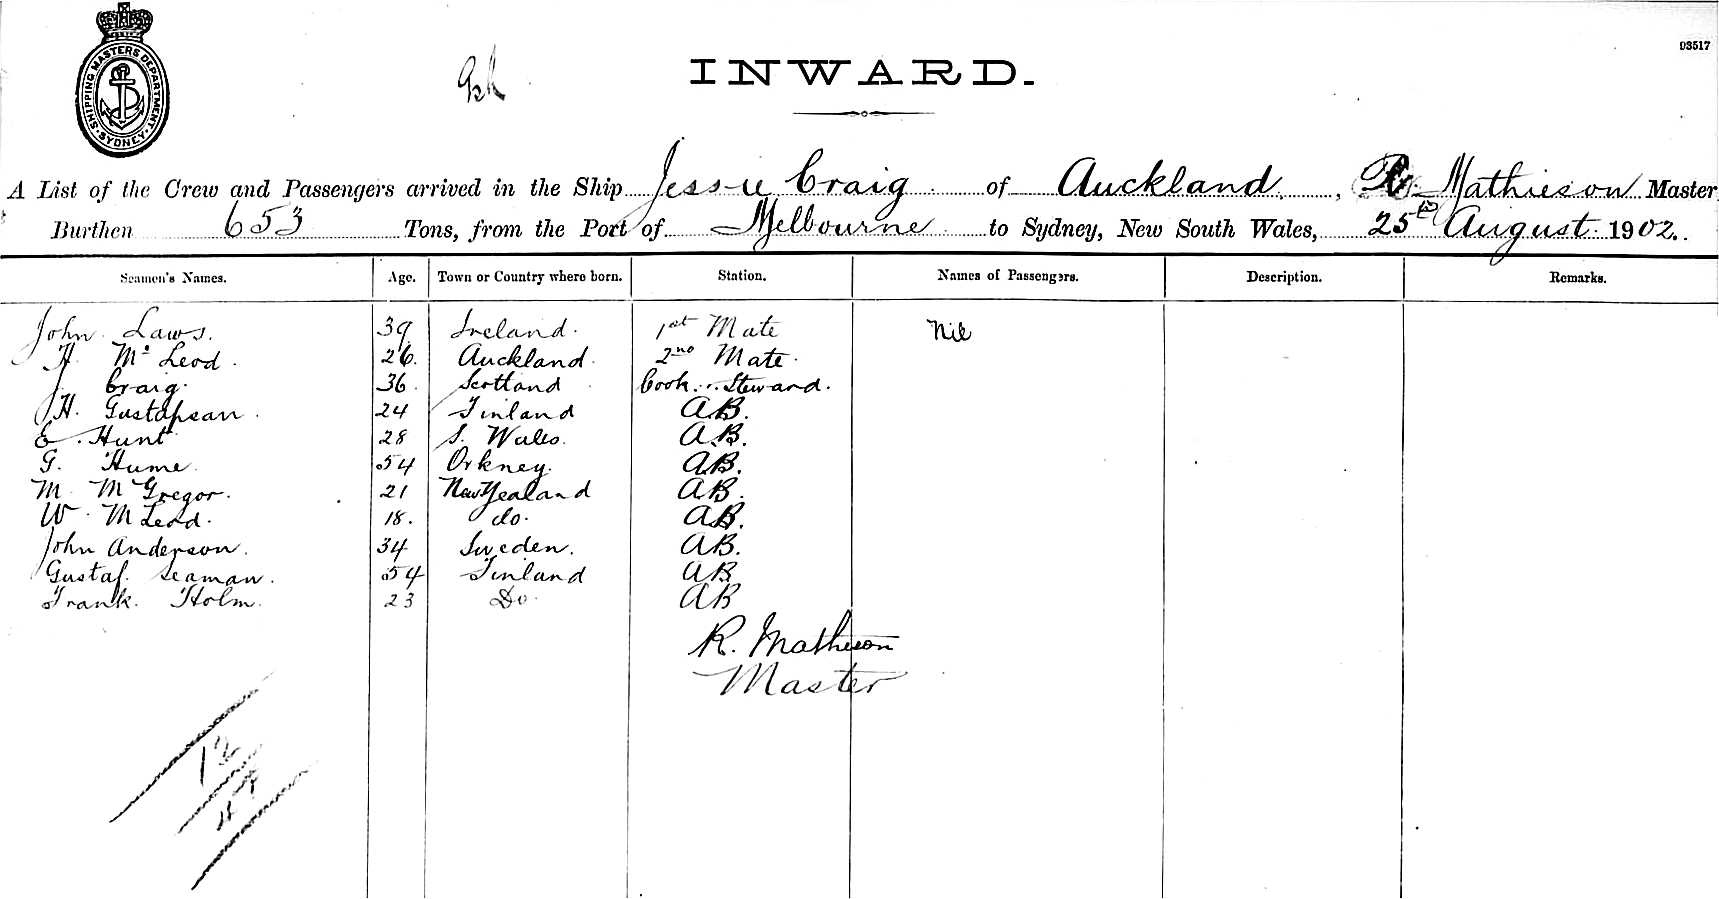 SHIPPING MASTERS DEPARTMENT. SYDNEY.
INWARD.
93517
A List of the Crew and Passengers arrived in the Ship Jessie Craig of Auckland, R. Mathieson Master
Burthen 653 Tons, from the Port of Melbourne to Sydney, New South Wales, 25th August 1902.
Seamen's Names. Age. Town or Country where born. Station. Names of Passengers. Description. Remarks.
John Laws. 39 Ireland. 1st Mate Nil
H. McLeod. 26. Auckland. 2nd Mate.
J Craig. 36. Scotland Cook & Steward.
H. Gustafsan. 24 Finland AB.
E. Hunt 28 S. Wales. AB.
G. Hume. 54 Orkney. AB.
M. McGregor. 21 New Zealand AB.
W. McLeod. 18. do. AB.
John Anderson. 34 Sweden. AB.
Gustaf. Seaman. 54 Finland AB
Frank. Holm. 23 Do. AB
R. Mathieson
Master
12